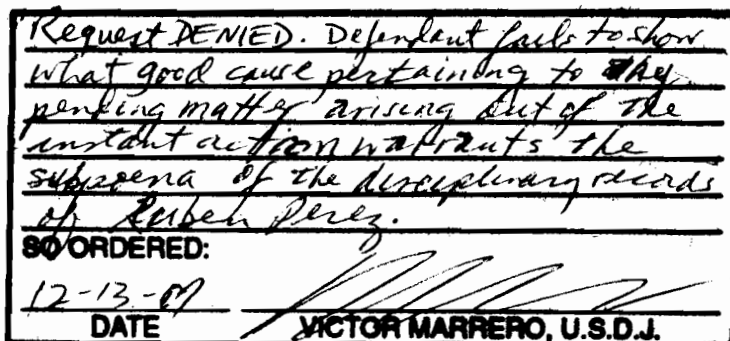 Request DENIED. Defendant fails to show
what good cause pertaining to any
pending matter arising out of the
instant action warrants the
subpoena of the disciplinary records
of Ruben Perez.
SO ORDERED:
12-13-07
DATE VICTOR MARRERO, U.S.D.J.